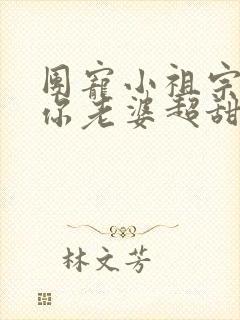 团宠小祖宗
你老婆超甜
林文芳